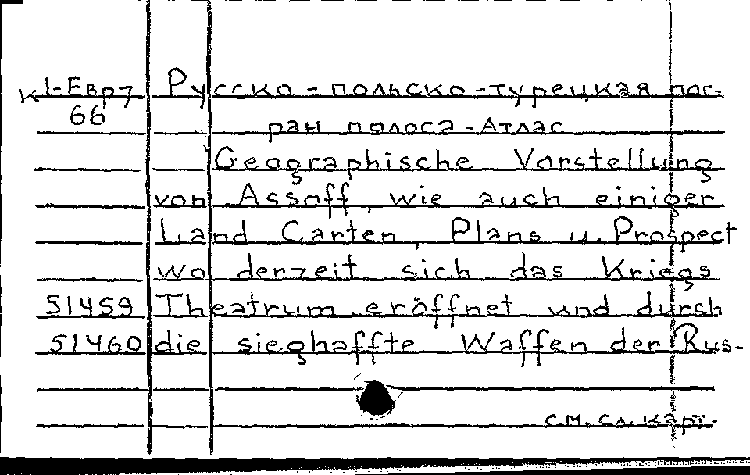 К1-Евр7 Русско-польско-турецкая пог-
66 ран полоса - Атлас
Geographische Vorstellung
von Assoff, wie auch einiger
Land Carten, Plans u. Prospect
wo derzeit sich das Kriegs
51459 Theatrum eröffnet und durch
51460 die sieghaffte Waffen der Rus-
см. сл. карт.